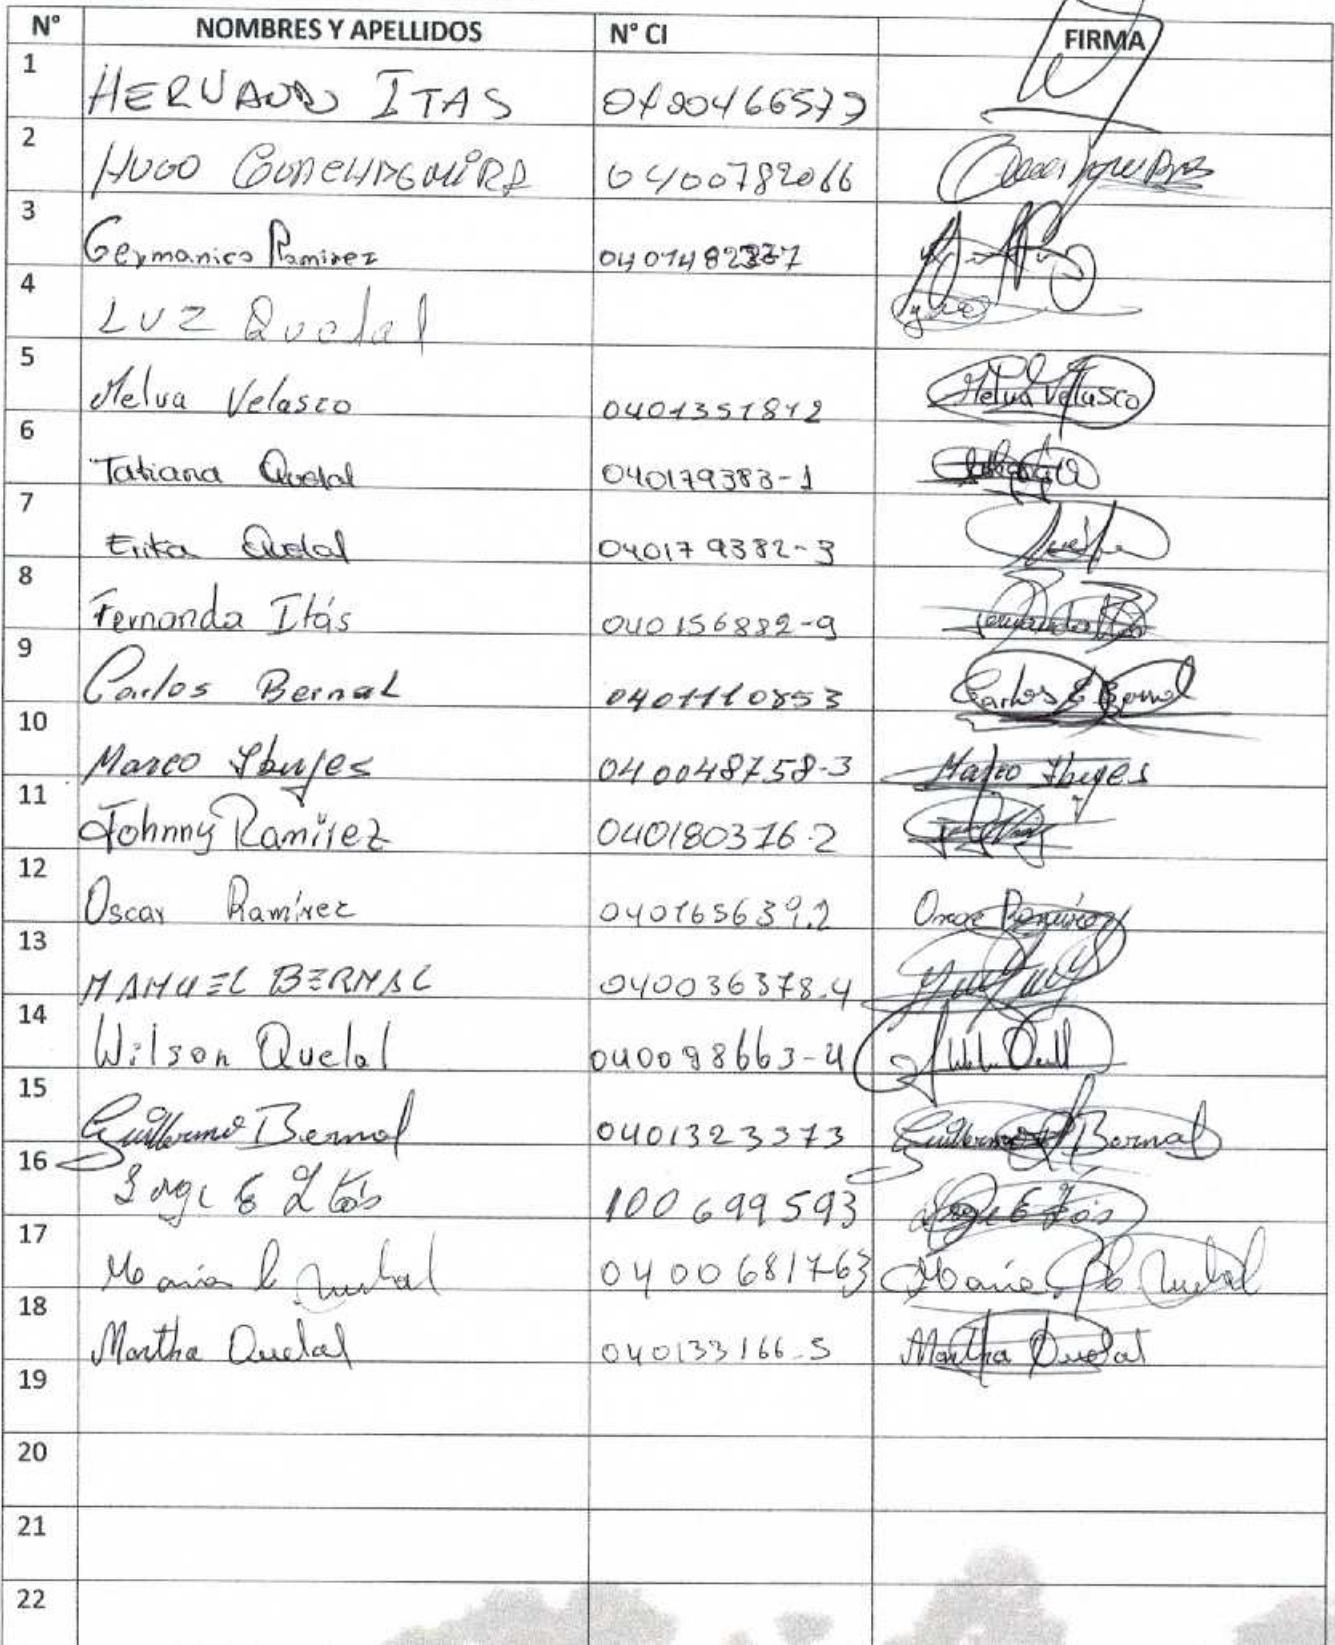 N° NOMBRES Y APELLIDOS N° CI FIRMA
1 HERNANDO ITAS 0400466579
2 HUGO 0400782066
3 Germanico Ramirez
4 LUZ Quelal
5 Melva Velasco 0401351812 Melva Velasco
6 Tatiana Quelal 040179383-1
7 Erika Quelal 040179382-3
8 Fernanda Itás 040156882-9 Fernanda Itás
9 Carlos Bernal 0401110853 Carlos E Bernal
10 Marco Ibujes 040048758-3 Marco Ibujes
11 Johnny Ramirez 040180376-2
12 Oscar Ramírez 040165639.2 Oscar Ramírez
13 MANUEL BERNAL 040036378.4
14 Wilson Quelal 040098663-4
15 Guillermo Bernal 0401323373 Guillermo Bernal
16 Jorge E Itás 100699593 Jorge E Itás
17 Maria l Quelal 0400681763 Maria Quelal
18 Martha Quelal 040133166-5 Martha Quelal
19
20
21
22